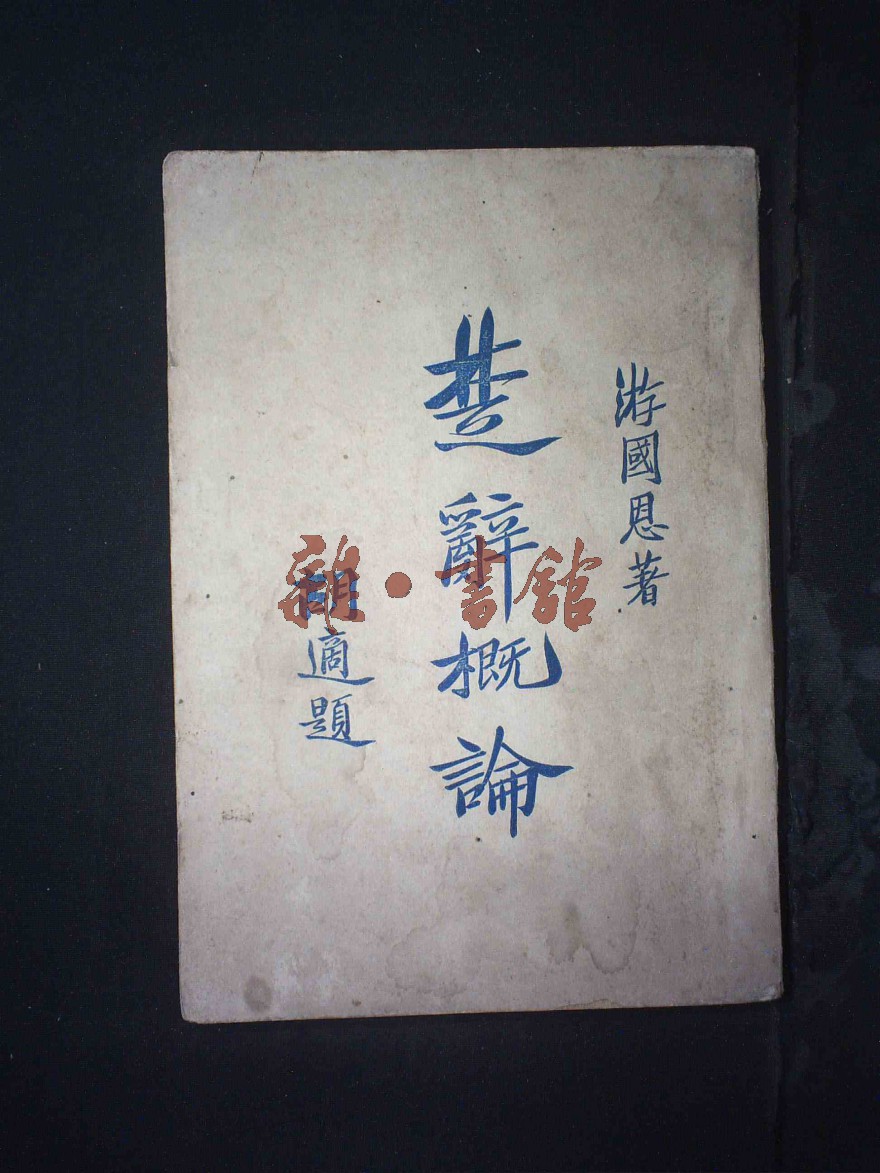 游國恩著
楚辭概論
胡適題
雜·書館